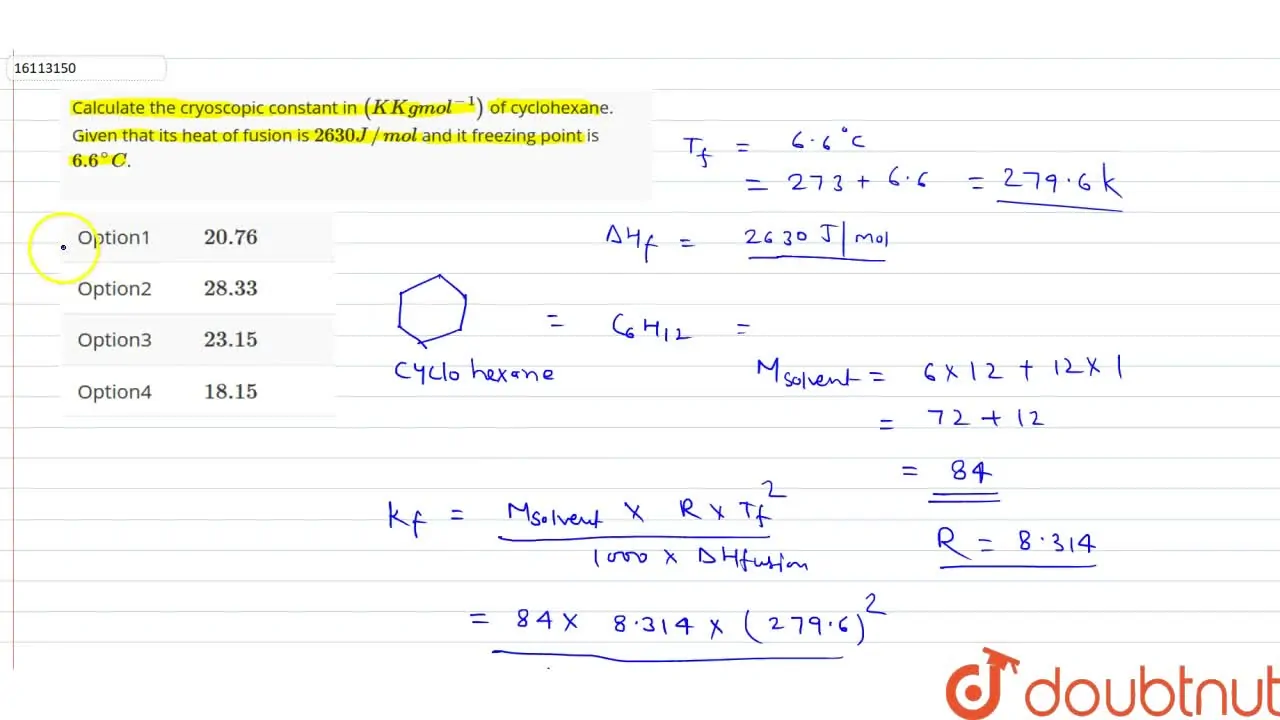 16113150
Calculate the cryoscopic constant in (K Kgmol⁻¹) of cyclohexane.
Given that its heat of fusion is 2630J/mol and it freezing point is
6.6°C.
Option1 20.76
Option2 28.33
Option3 23.15
Option4 18.15
Tf = 6.6°C
= 273 + 6.6 = 279.6 k
ΔHf = 2630 J/mol
= C6H12 =
Cyclo hexane
Msolvent = 6 × 12 + 12 × 1
= 72 + 12
= 84
Kf = Msolvent × R × Tf²
1000 × ΔHfusion
R = 8.314
= 84 × 8.314 × (279.6)²
doubtnut